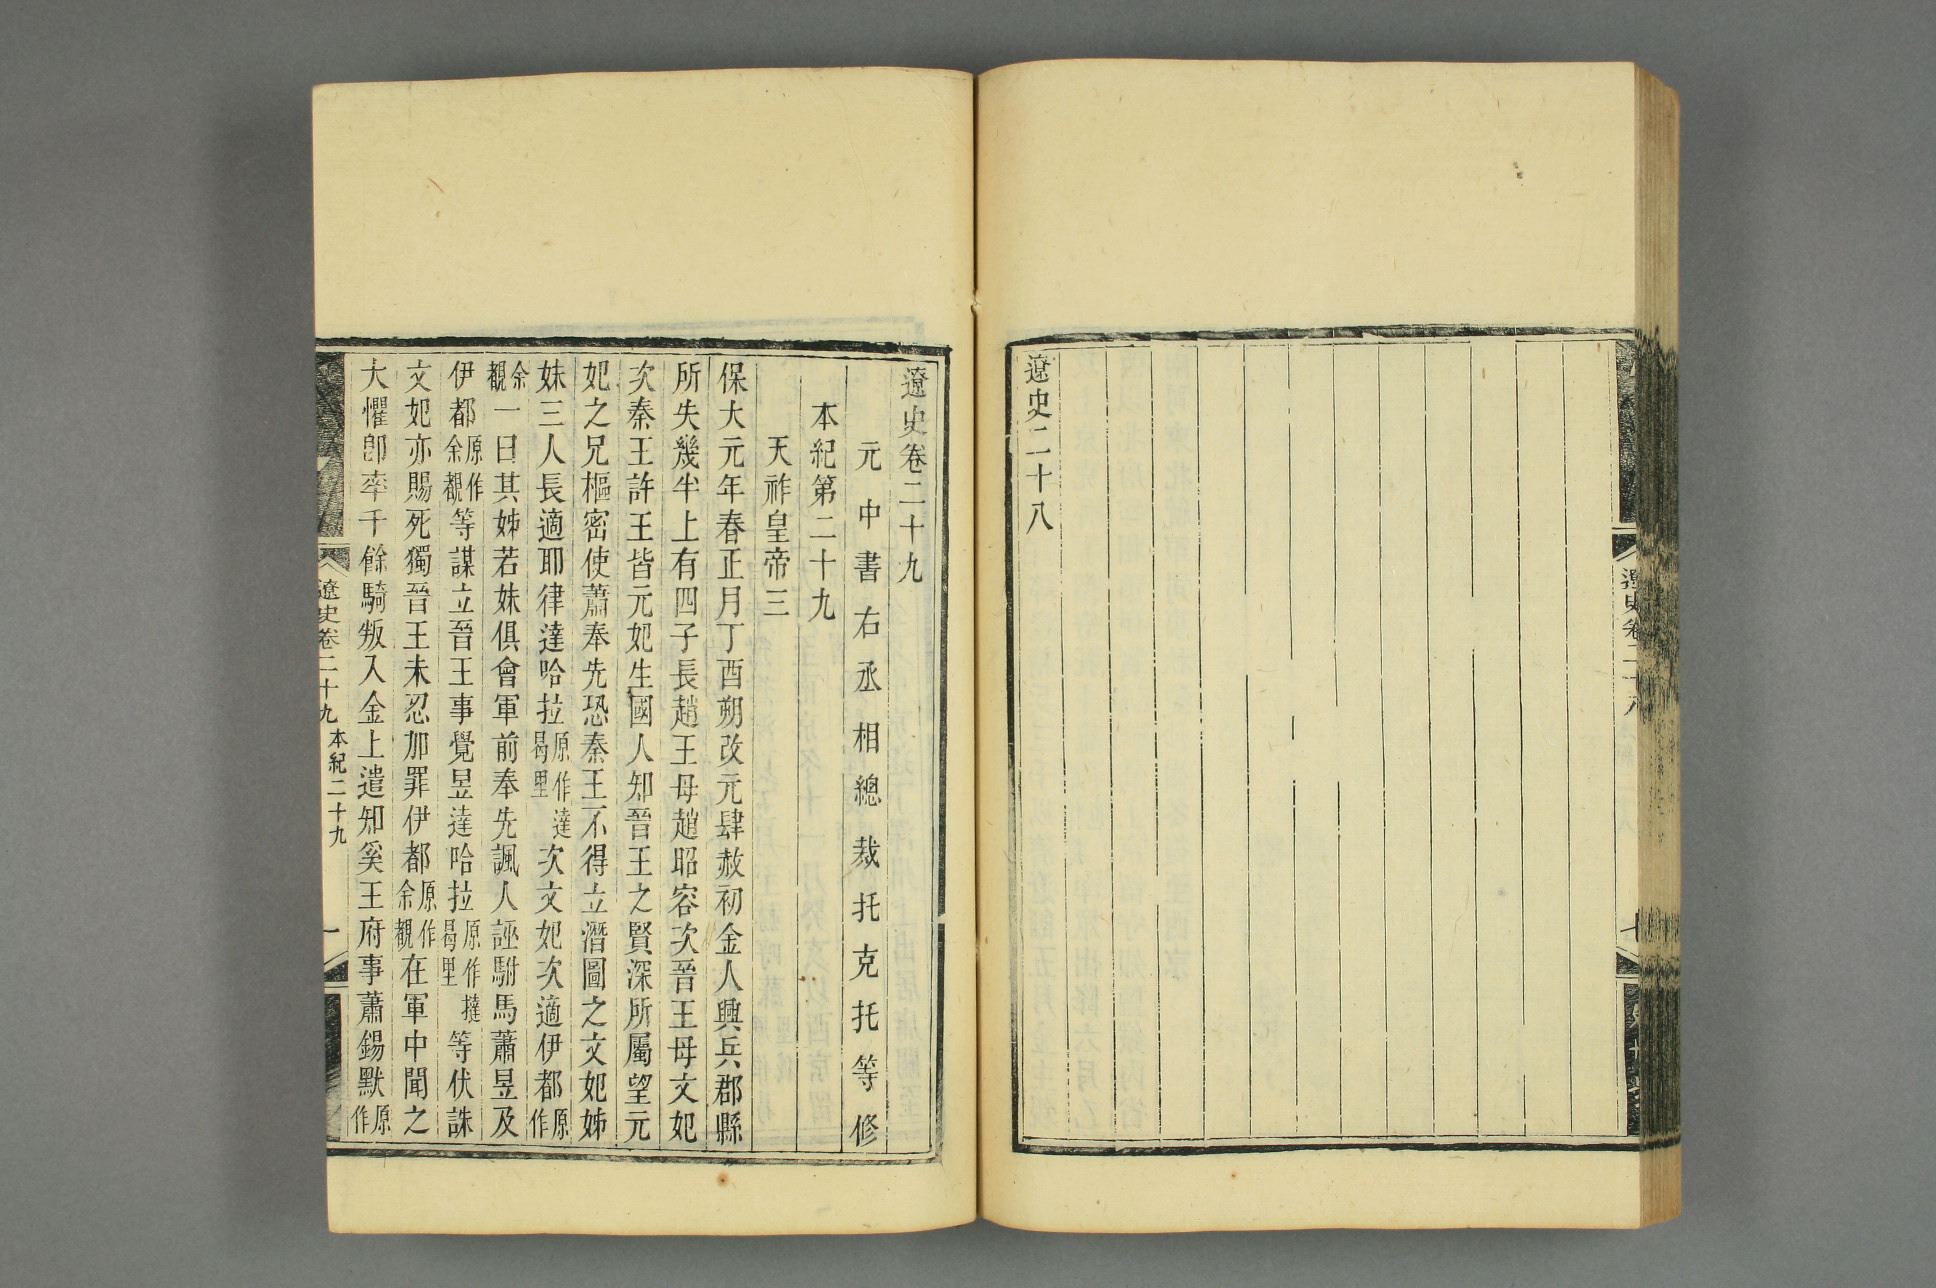 遼史二十八
遼史卷二十八
七
遼史卷二十九
元中書右丞相總裁托克托等修
本紀第二十九
天祚皇帝三
保大元年春正月丁酉朔改元肆赦初金人興兵郡縣
所失幾半上有四子長趙王母趙昭容次晉王母文妃
次秦王許王皆元妃生國人知晉王之賢深所屬望元
妃之兄樞密使蕭奉先恐秦王不得立潛圖之文妃姊
妹三人長適耶律達哈拉原作達曷里次文妃次適伊都原作
余覩一日其姊若妹俱會軍前奉先諷人誣駙馬蕭昱及
伊都原作余覩等謀立晉王事覺昱達哈拉原作撻曷里等伏誅
文妃亦賜死獨晉王未忍加罪伊都原作余覩在軍中聞之
大懼卽率千餘騎叛入金上遣知奚王府事蕭錫默原作
遼史卷二十九 本紀二十九
一